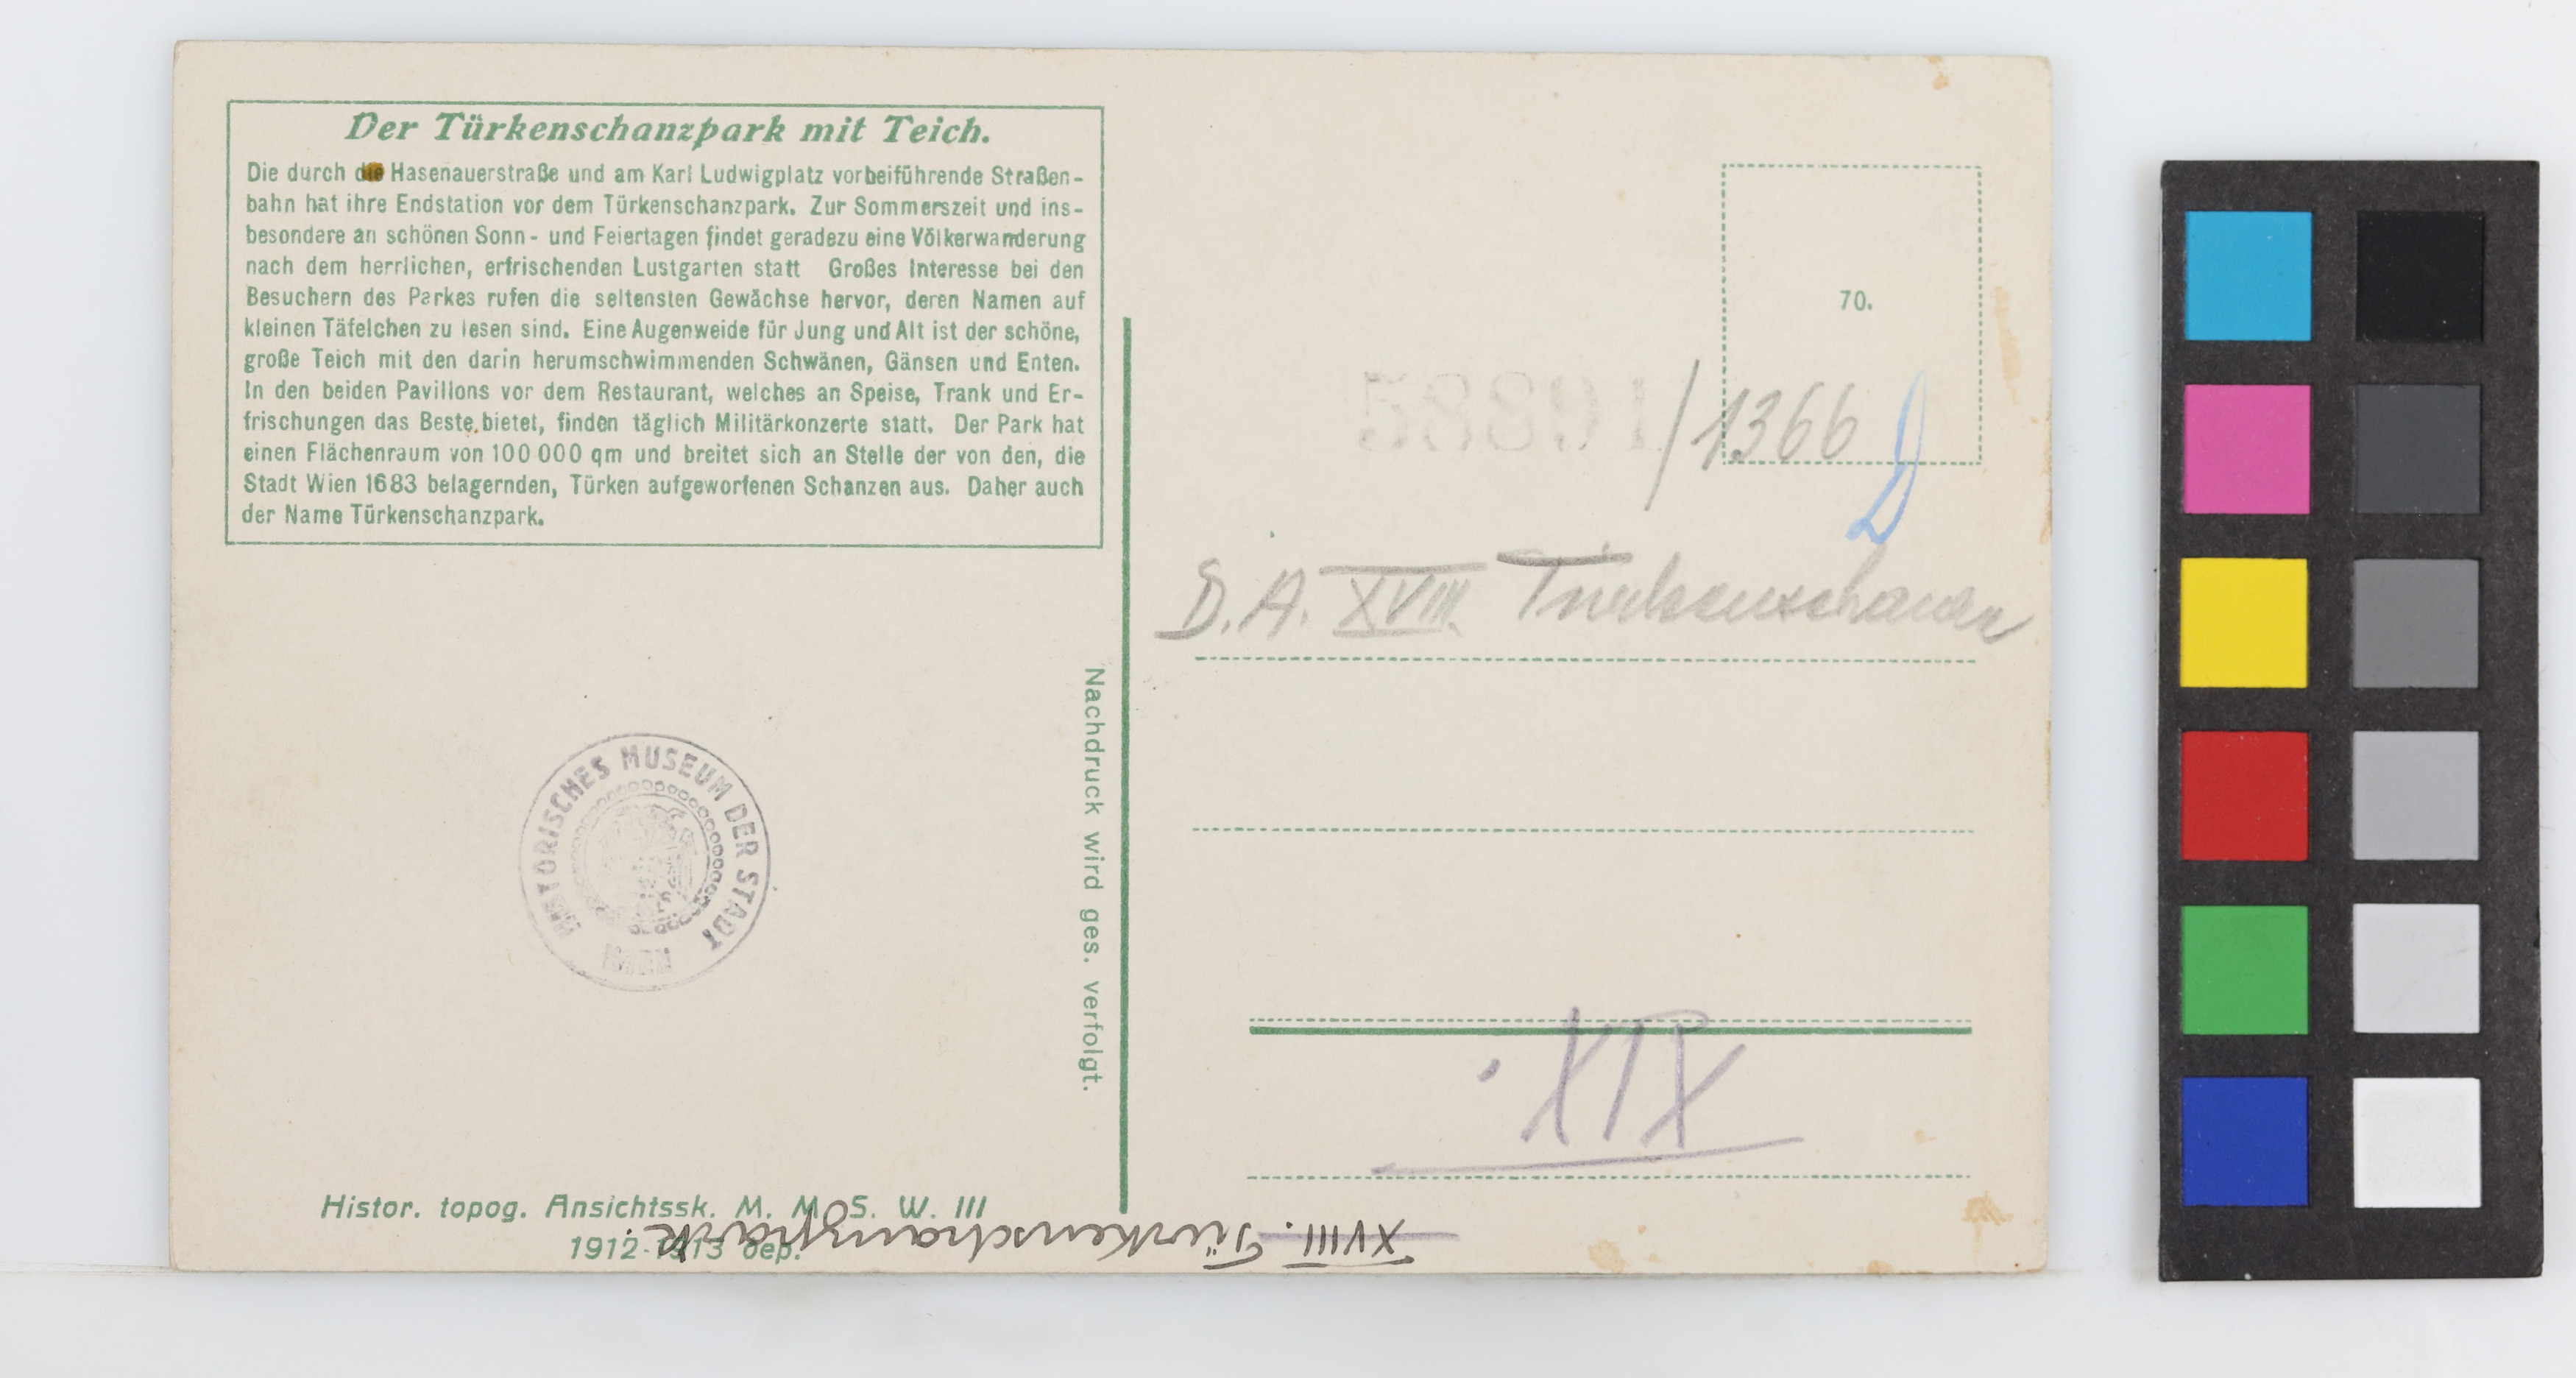 Der Türkenschanzpark mit Teich.
Die durch die Hasenauerstraße und am Karl Ludwigplatz vorbeiführende Straßen-
bahn hat ihre Endstation vor dem Türkenschanzpark. Zur Sommerszeit und ins-
besondere an schönen Sonn- und Feiertagen findet geradezu eine Völkerwanderung
nach dem herrlichen, erfrischenden Lustgarten statt Großes Interesse bei den
Besuchern des Parkes rufen die seltensten Gewächse hervor, deren Namen auf
kleinen Täfelchen zu lesen sind. Eine Augenweide für Jung und Alt ist der schöne,
große Teich mit den darin herumschwimmenden Schwänen, Gänsen und Enten.
In den beiden Pavillons vor dem Restaurant, welches an Speise, Trank und Er-
frischungen das Beste bietet, finden täglich Militärkonzerte statt. Der Park hat
einen Flächenraum von 100 000 qm und breitet sich an Stelle der von den, die
Stadt Wien 1683 belagernden, Türken aufgeworfenen Schanzen aus. Daher auch
der Name Türkenschanzpark.
HISTORISCHES MUSEUM DER STADT WIEN
Histor. topog. Ansichtssk. M. M. S. W. III
1912-1913 dep.
Nachdruck wird ges. verfolgt.
70.
58891/1366
D
D.A. XVIII.
XIX
XVIII. Türkenschanzpark.